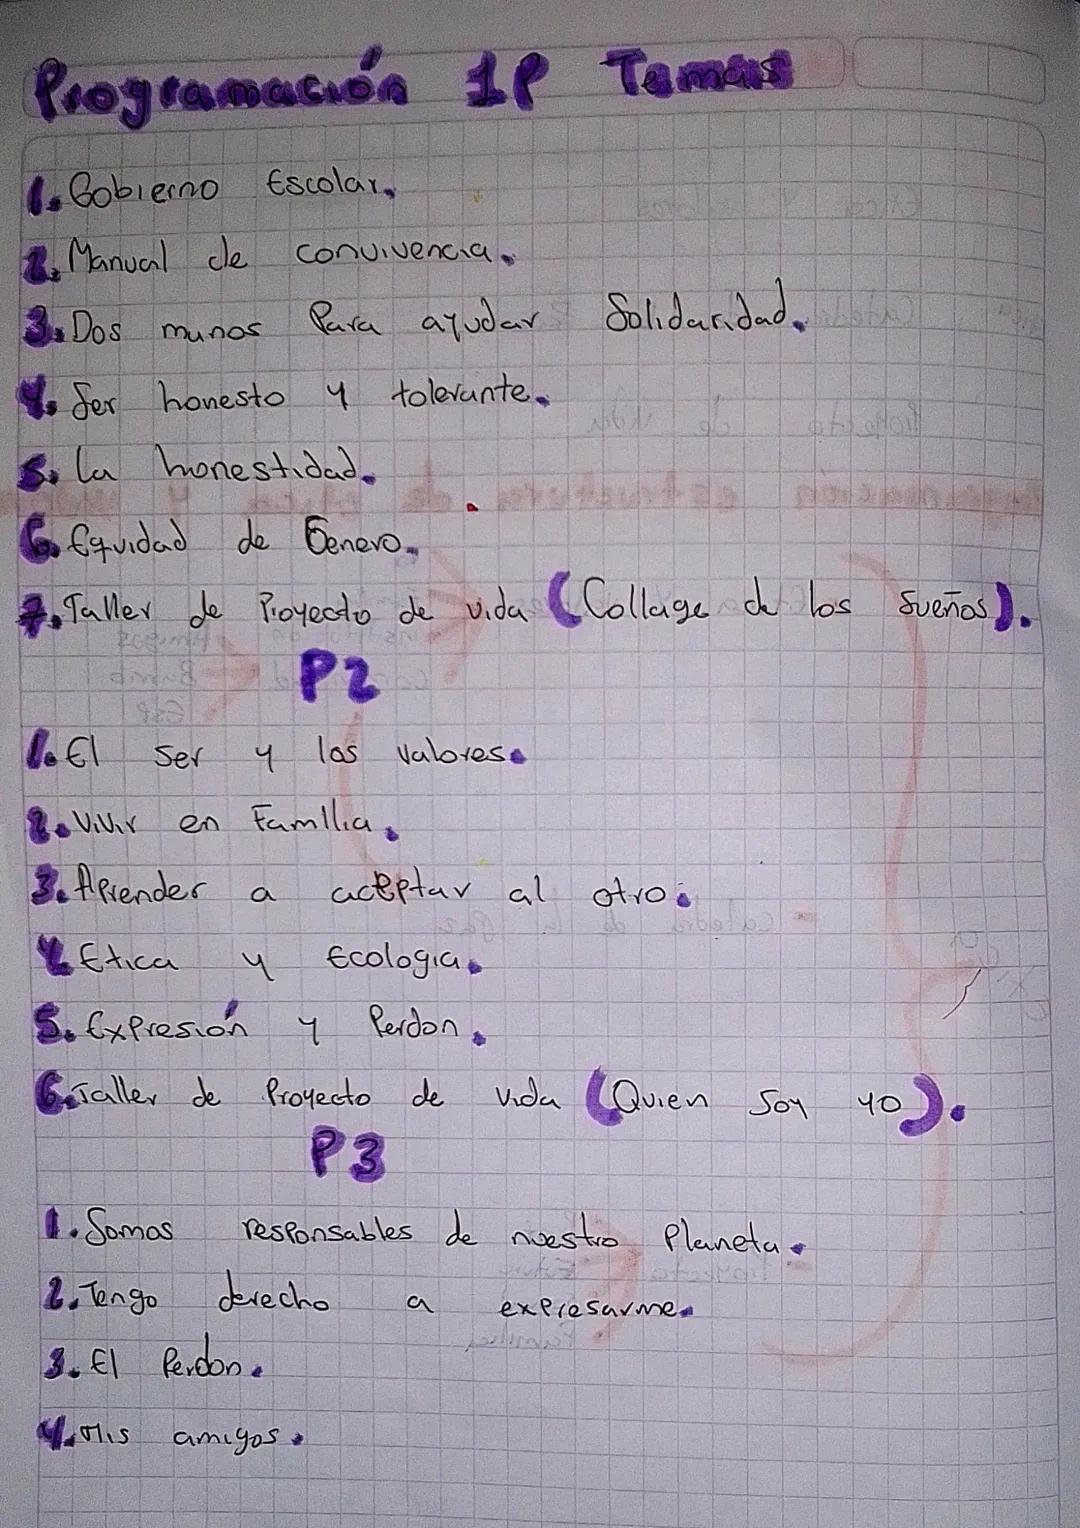 Programación 1P Temas
1. Gobierno Escolar.
2. Manual de convivencia.
3. Dos munos Para ayudar Solidaridad.
4. Ser honesto y tolerante.
5. la honestidad.
6. Equidad de Genero.
7. Taller de Proyecto de vida (Collage de los sueños).
P2
1. El ser y los valores.
2. Vivir en Famllia.
3. APrender a aceptar al otro.
4. Etica y Ecologia.
5. ExPresión y Perdon.
6. Taller de Proyecto de vida (Quien soy yo).
P3
1. Somos responsables de nuestro Planeta.
2. Tengo derecho a expresarme.
3. El Perdon.
4. Mis amigos.